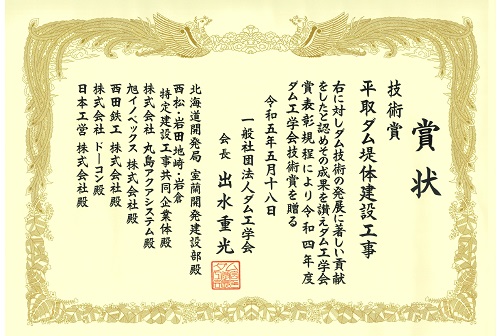 賞状
技術賞
平取ダム堤体建設工事
右に対しダム技術の発展に著しい貢献
をしたと認めその成果を讃えダム工学会
賞表彰規程により令和四年度
ダム工学会技術賞を贈る
令和五年五月十八日
一般社団法人ダム工学会
会長 出水重光
北海道開発局 室蘭開発建設部殿
西松・岩田地崎・岩倉
特定建設工事共同企業体殿
株式会社 丸島アクアシステム殿
旭イノベックス 株式会社殿
西田鉄工 株式会社殿
株式会社 ドーコン殿
日本工営 株式会社殿